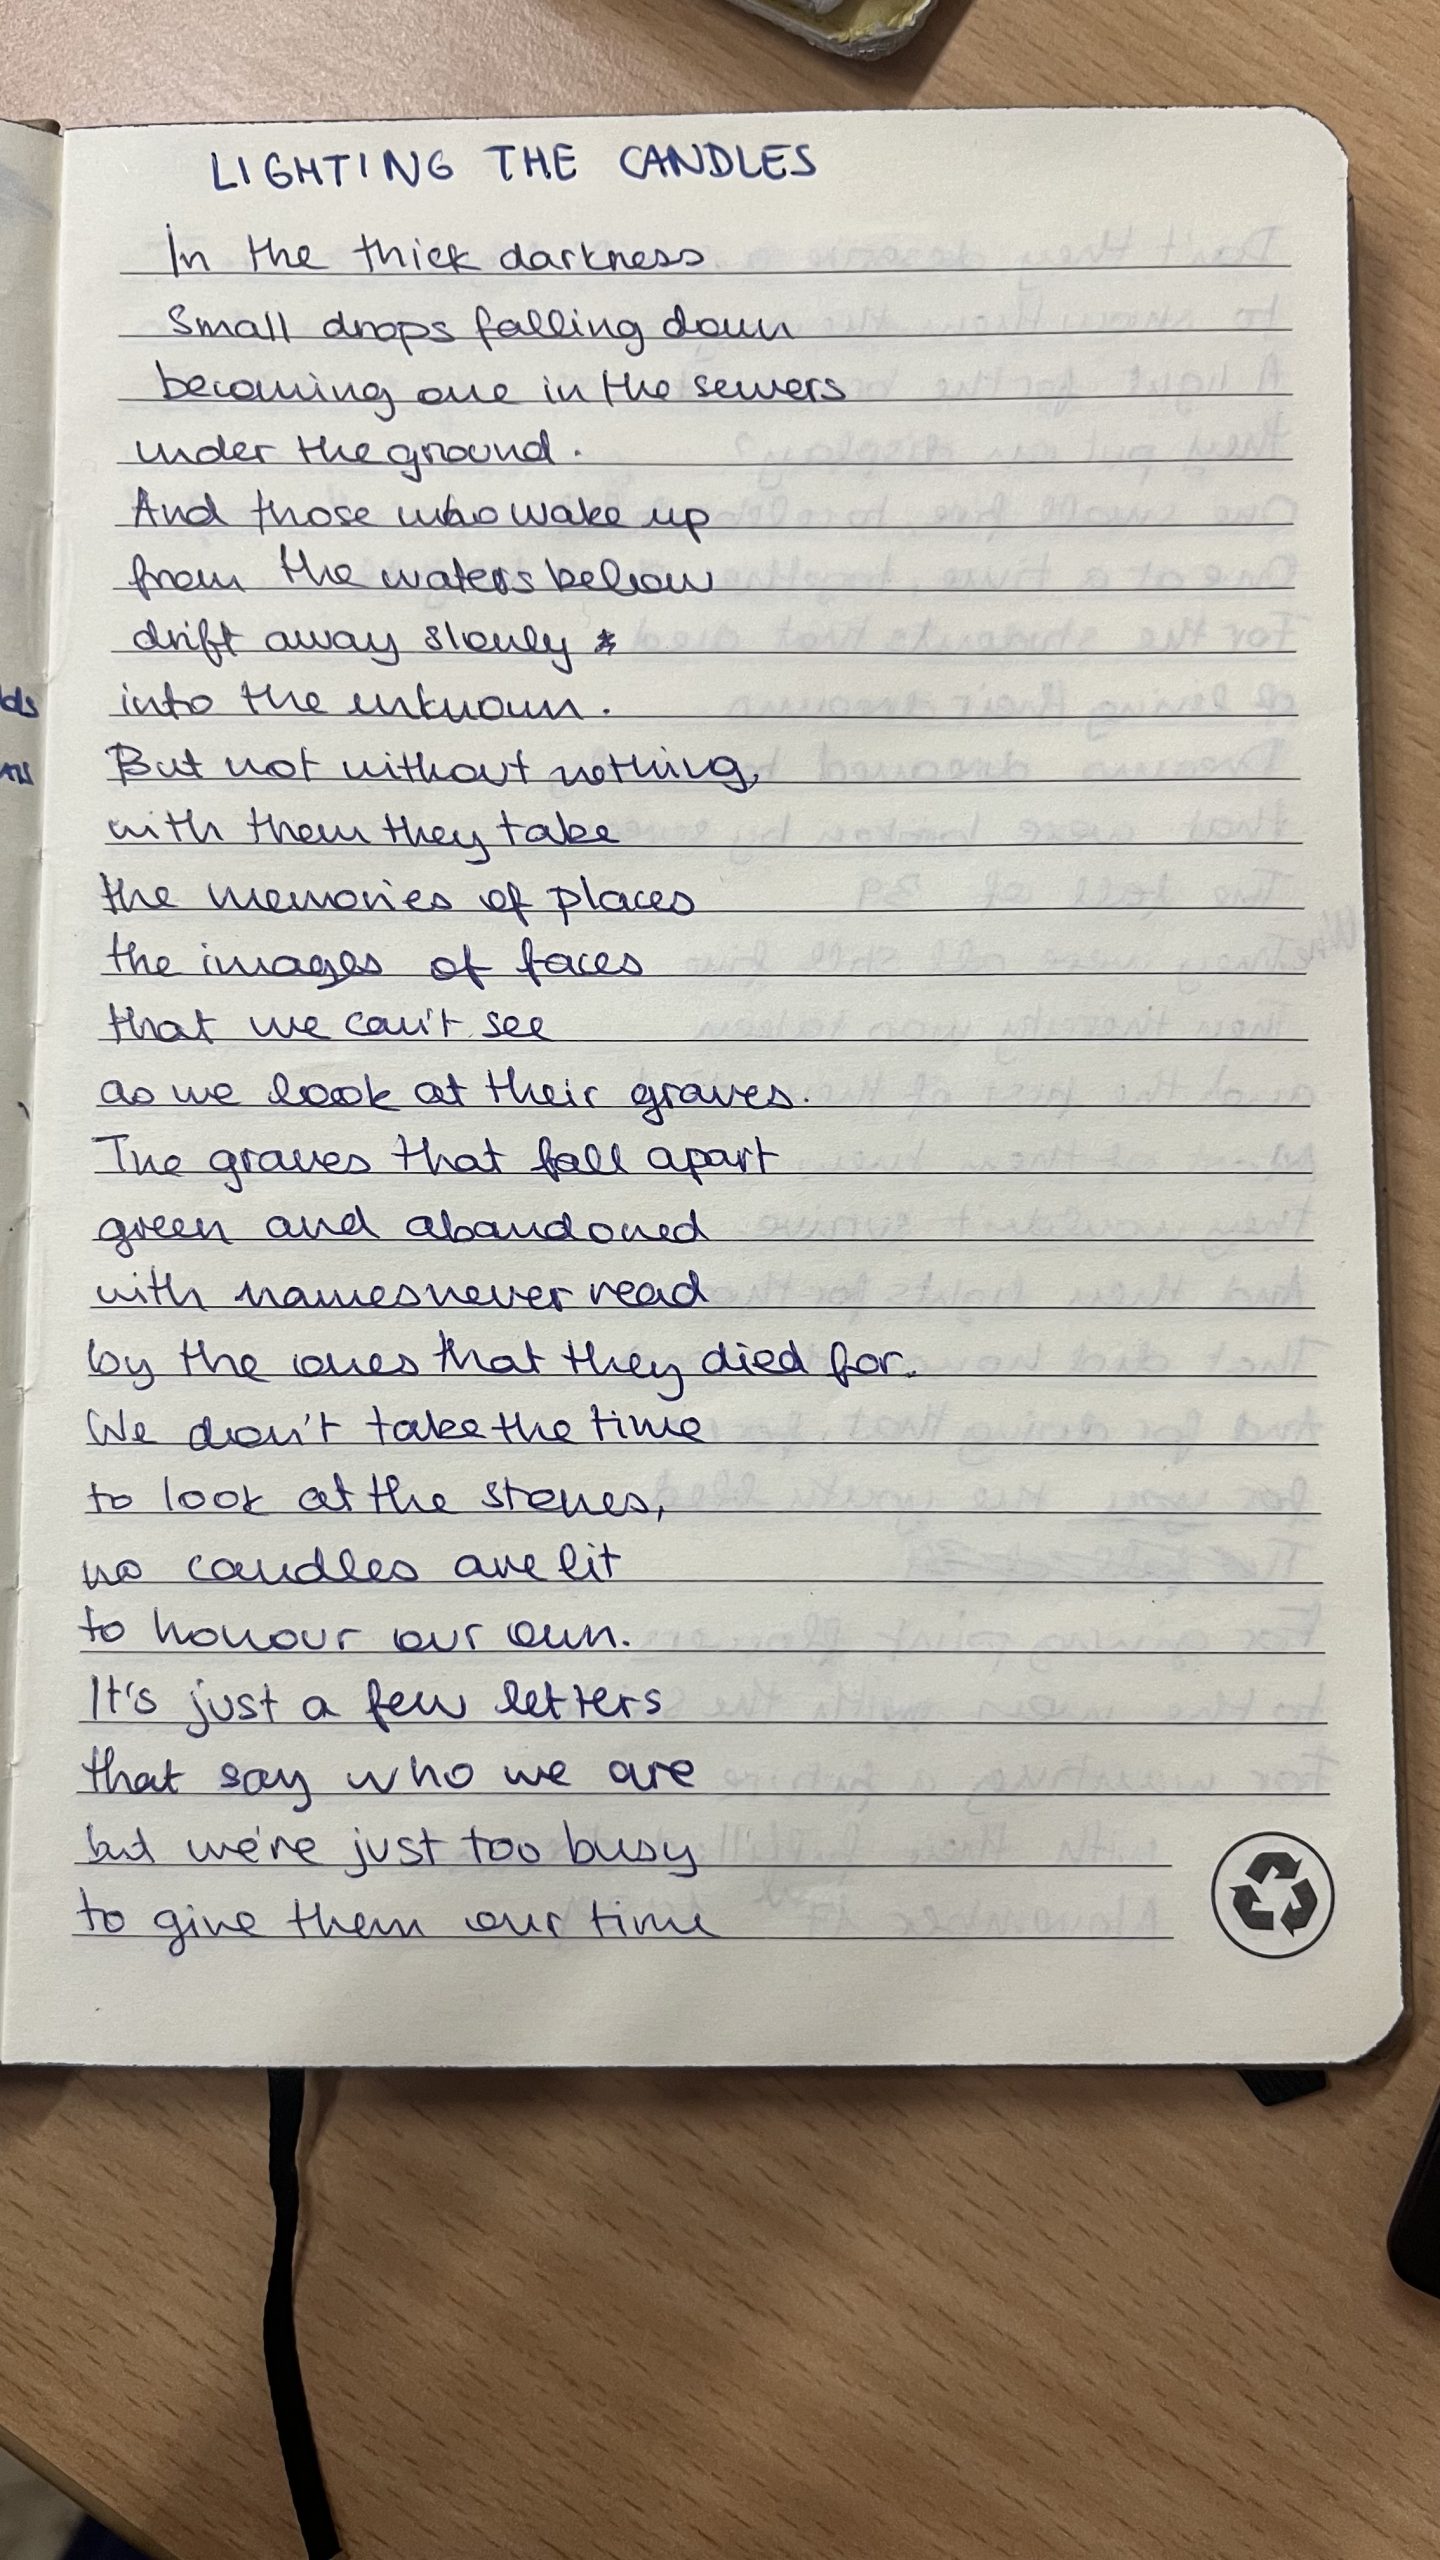 LIGHTING THE CANDLES
In the thick darkness
Small drops falling down
becoming one in the sewers
under the ground.
And those who wake up
from the waters below
drift away slowly
into the unknown.
But not without nothing,
with them they take
the memories of places
the images of faces
that we can't see
as we look at their graves.
The graves that fall apart
green and abandoned
with names never read
by the ones that they died for.
We don't take the time
to look at the stones,
no candles are lit
to honour our own.
It's just a few letters
that say who we are
but we're just too busy
to give them our time